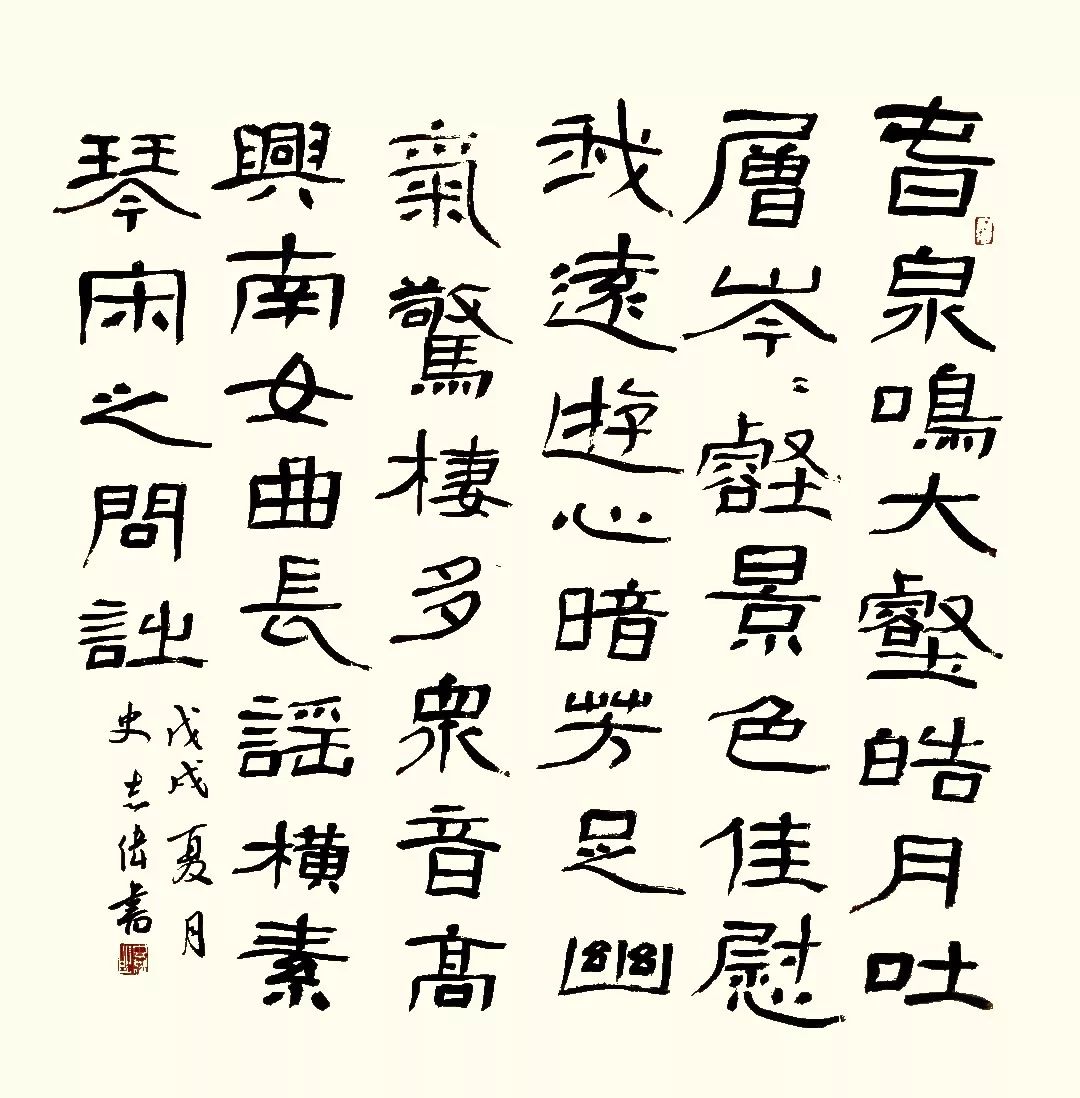 春泉鳴大壑皓月吐
層岑〻壑景色佳慰
我遠遊心暗芳足幽
氣驚棲多衆音高
興南女曲長謡橫素
琴宋之問詩
戊戌夏月
史志偉書